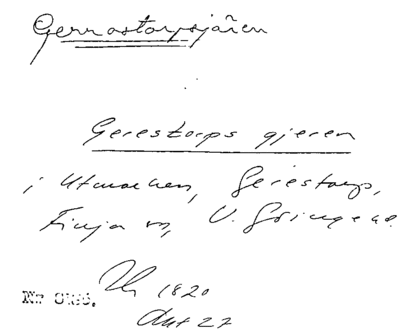 Gerrastorpsjären
Gerestorps gjeren
i Utmarken, Gerestorp,
Finja sn, V. Göinge hd.
1820
Akt 27